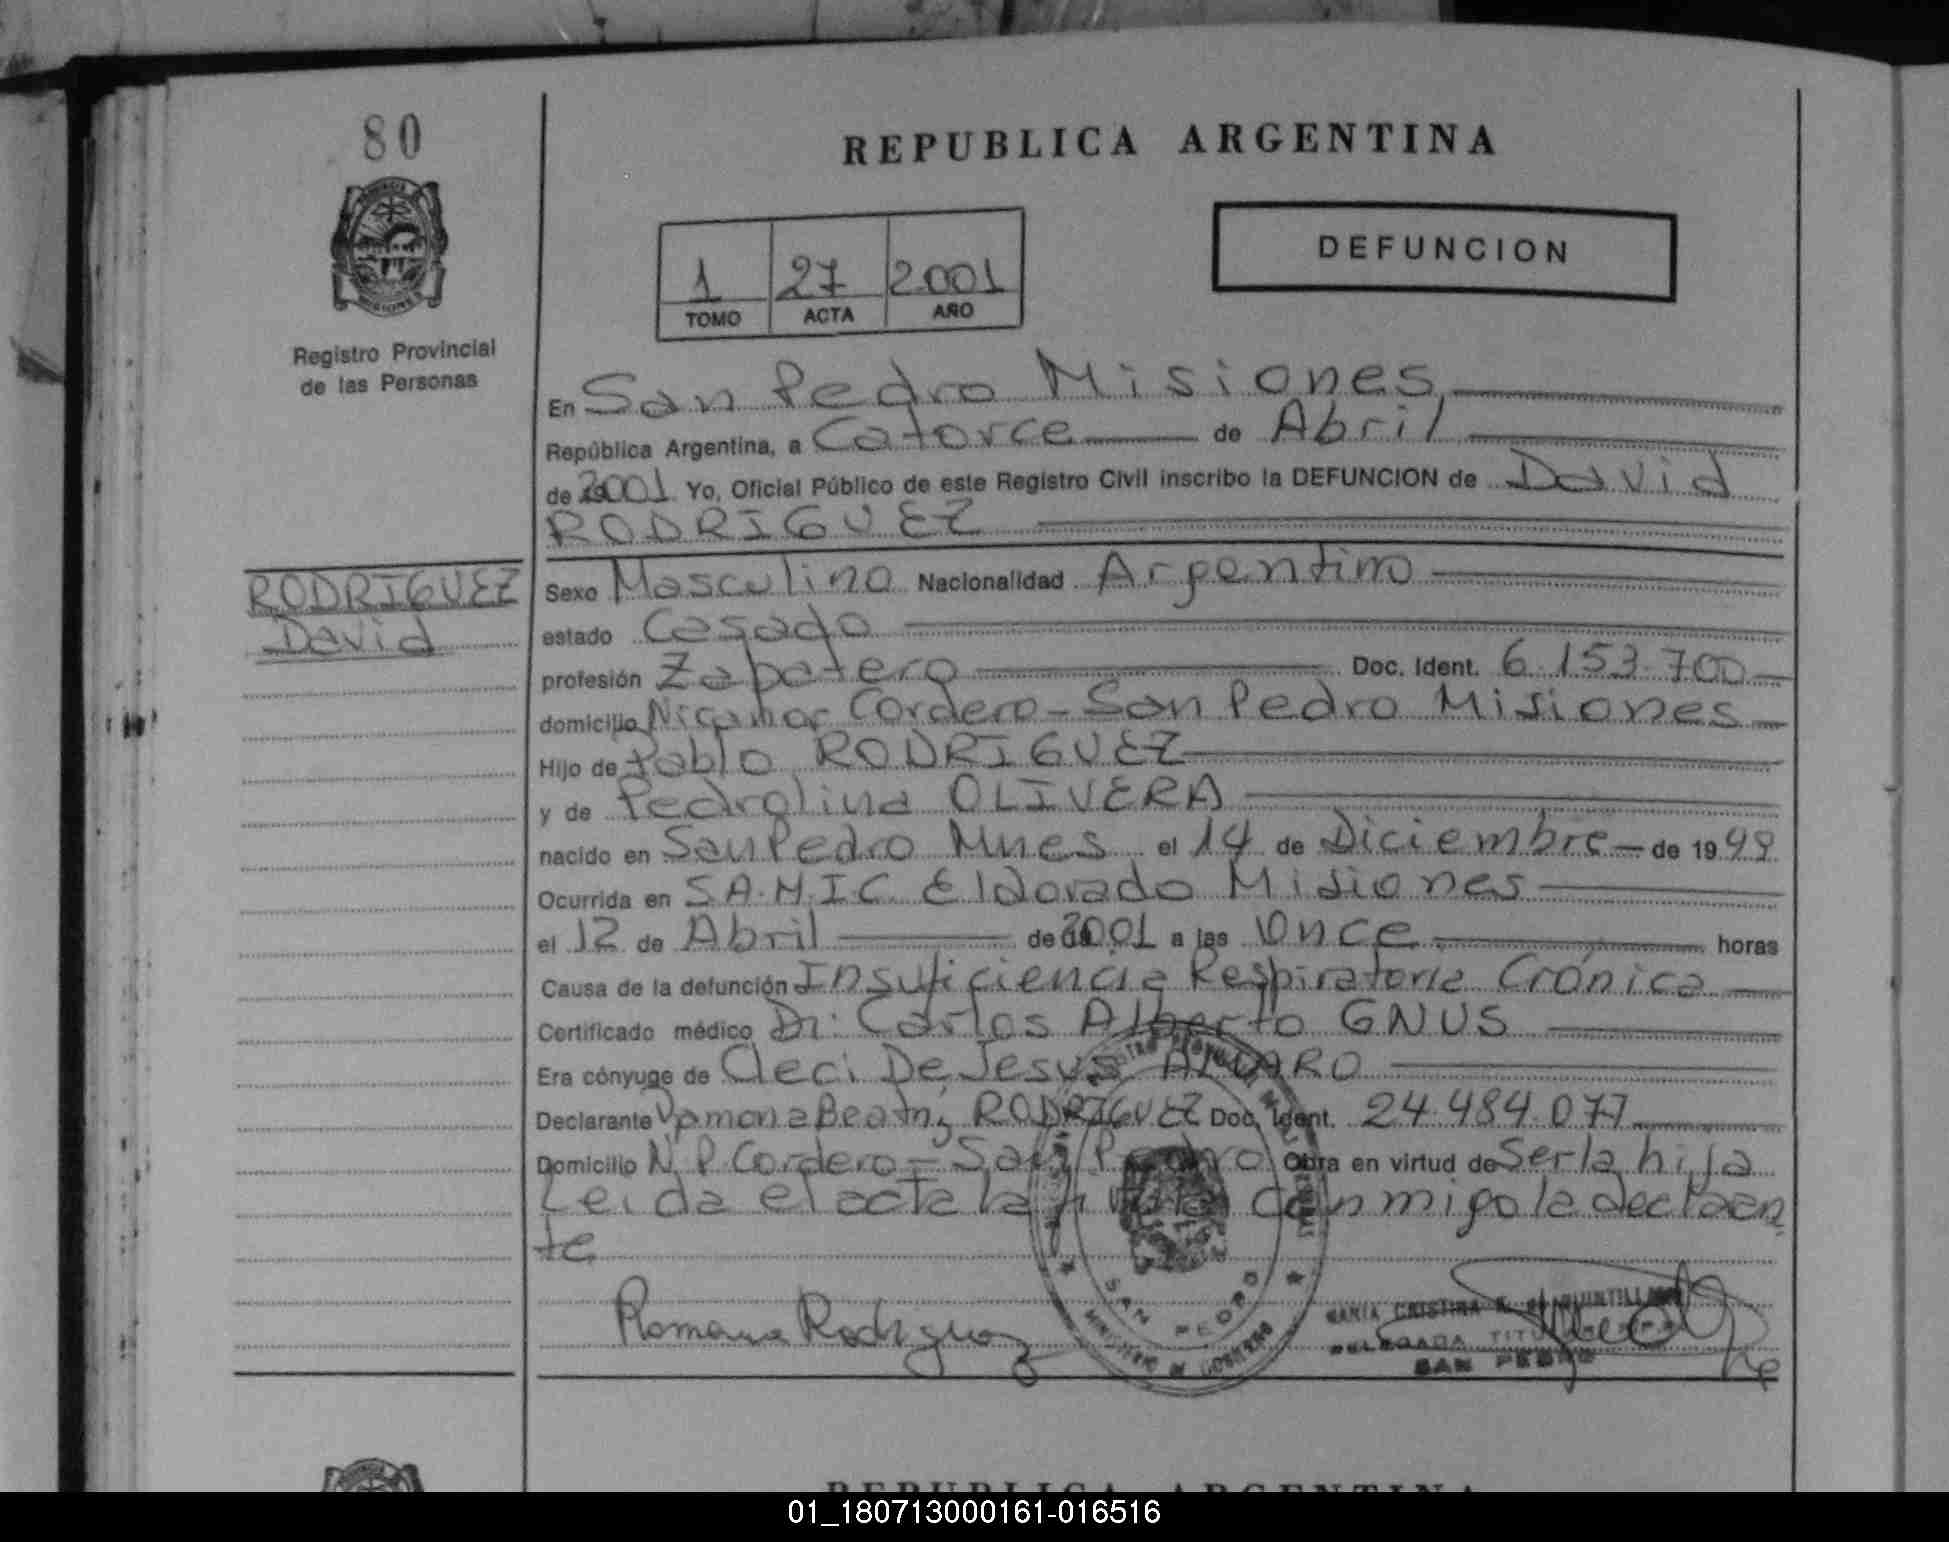 80
REPUBLICA ARGENTINA
DEFUNCION
1 27 2001
TOMO ACTA AÑO
Registro Provincial
de las Personas
En San Pedro Misiones
República Argentina, a Catorce de Abril
de 2001 Yo, Oficial Público de este Registro Civil inscribo la DEFUNCION de David
RODRIGUEZ
RODRIGUEZ
David
Sexo Masculino Nacionalidad Argentino
estado Casado
profesión Zapatero Doc. Ident. 6.153.700
domicilio Nicanor Cordero - San Pedro Misiones
Hijo de Pablo RODRIGUEZ
y de Pedrolina OLIVERA
nacido en San Pedro Mnes el 14 de Diciembre de 19
Ocurrida en S.A.M.I.C. Eldorado Misiones
el 12 de Abril de 2001 a las Once horas
Causa de la defunción Insuficiencia Respiratoria Crónica
Certificado médico Dr. Carlos Alberto GNUS
Era cónyuge de Cleci De Jesus
Declarante Ramona Beatriz RODRIGUEZ Doc. Ident. 24.484.077
Domicilio N.P. Cordero - San Pedro Obra en virtud de Ser la hija
Leida el acta la firma conmigo la declaran
te
Ramona Rodriguez
SAN PEDRO
MINISTERIO DE GOBIERNO
MARIA CRISTINA QUINTILLAN
DELEGADA TITULAR
SAN PEDRO
REPUBLICA ARGENTINA
01_180713000161-016516